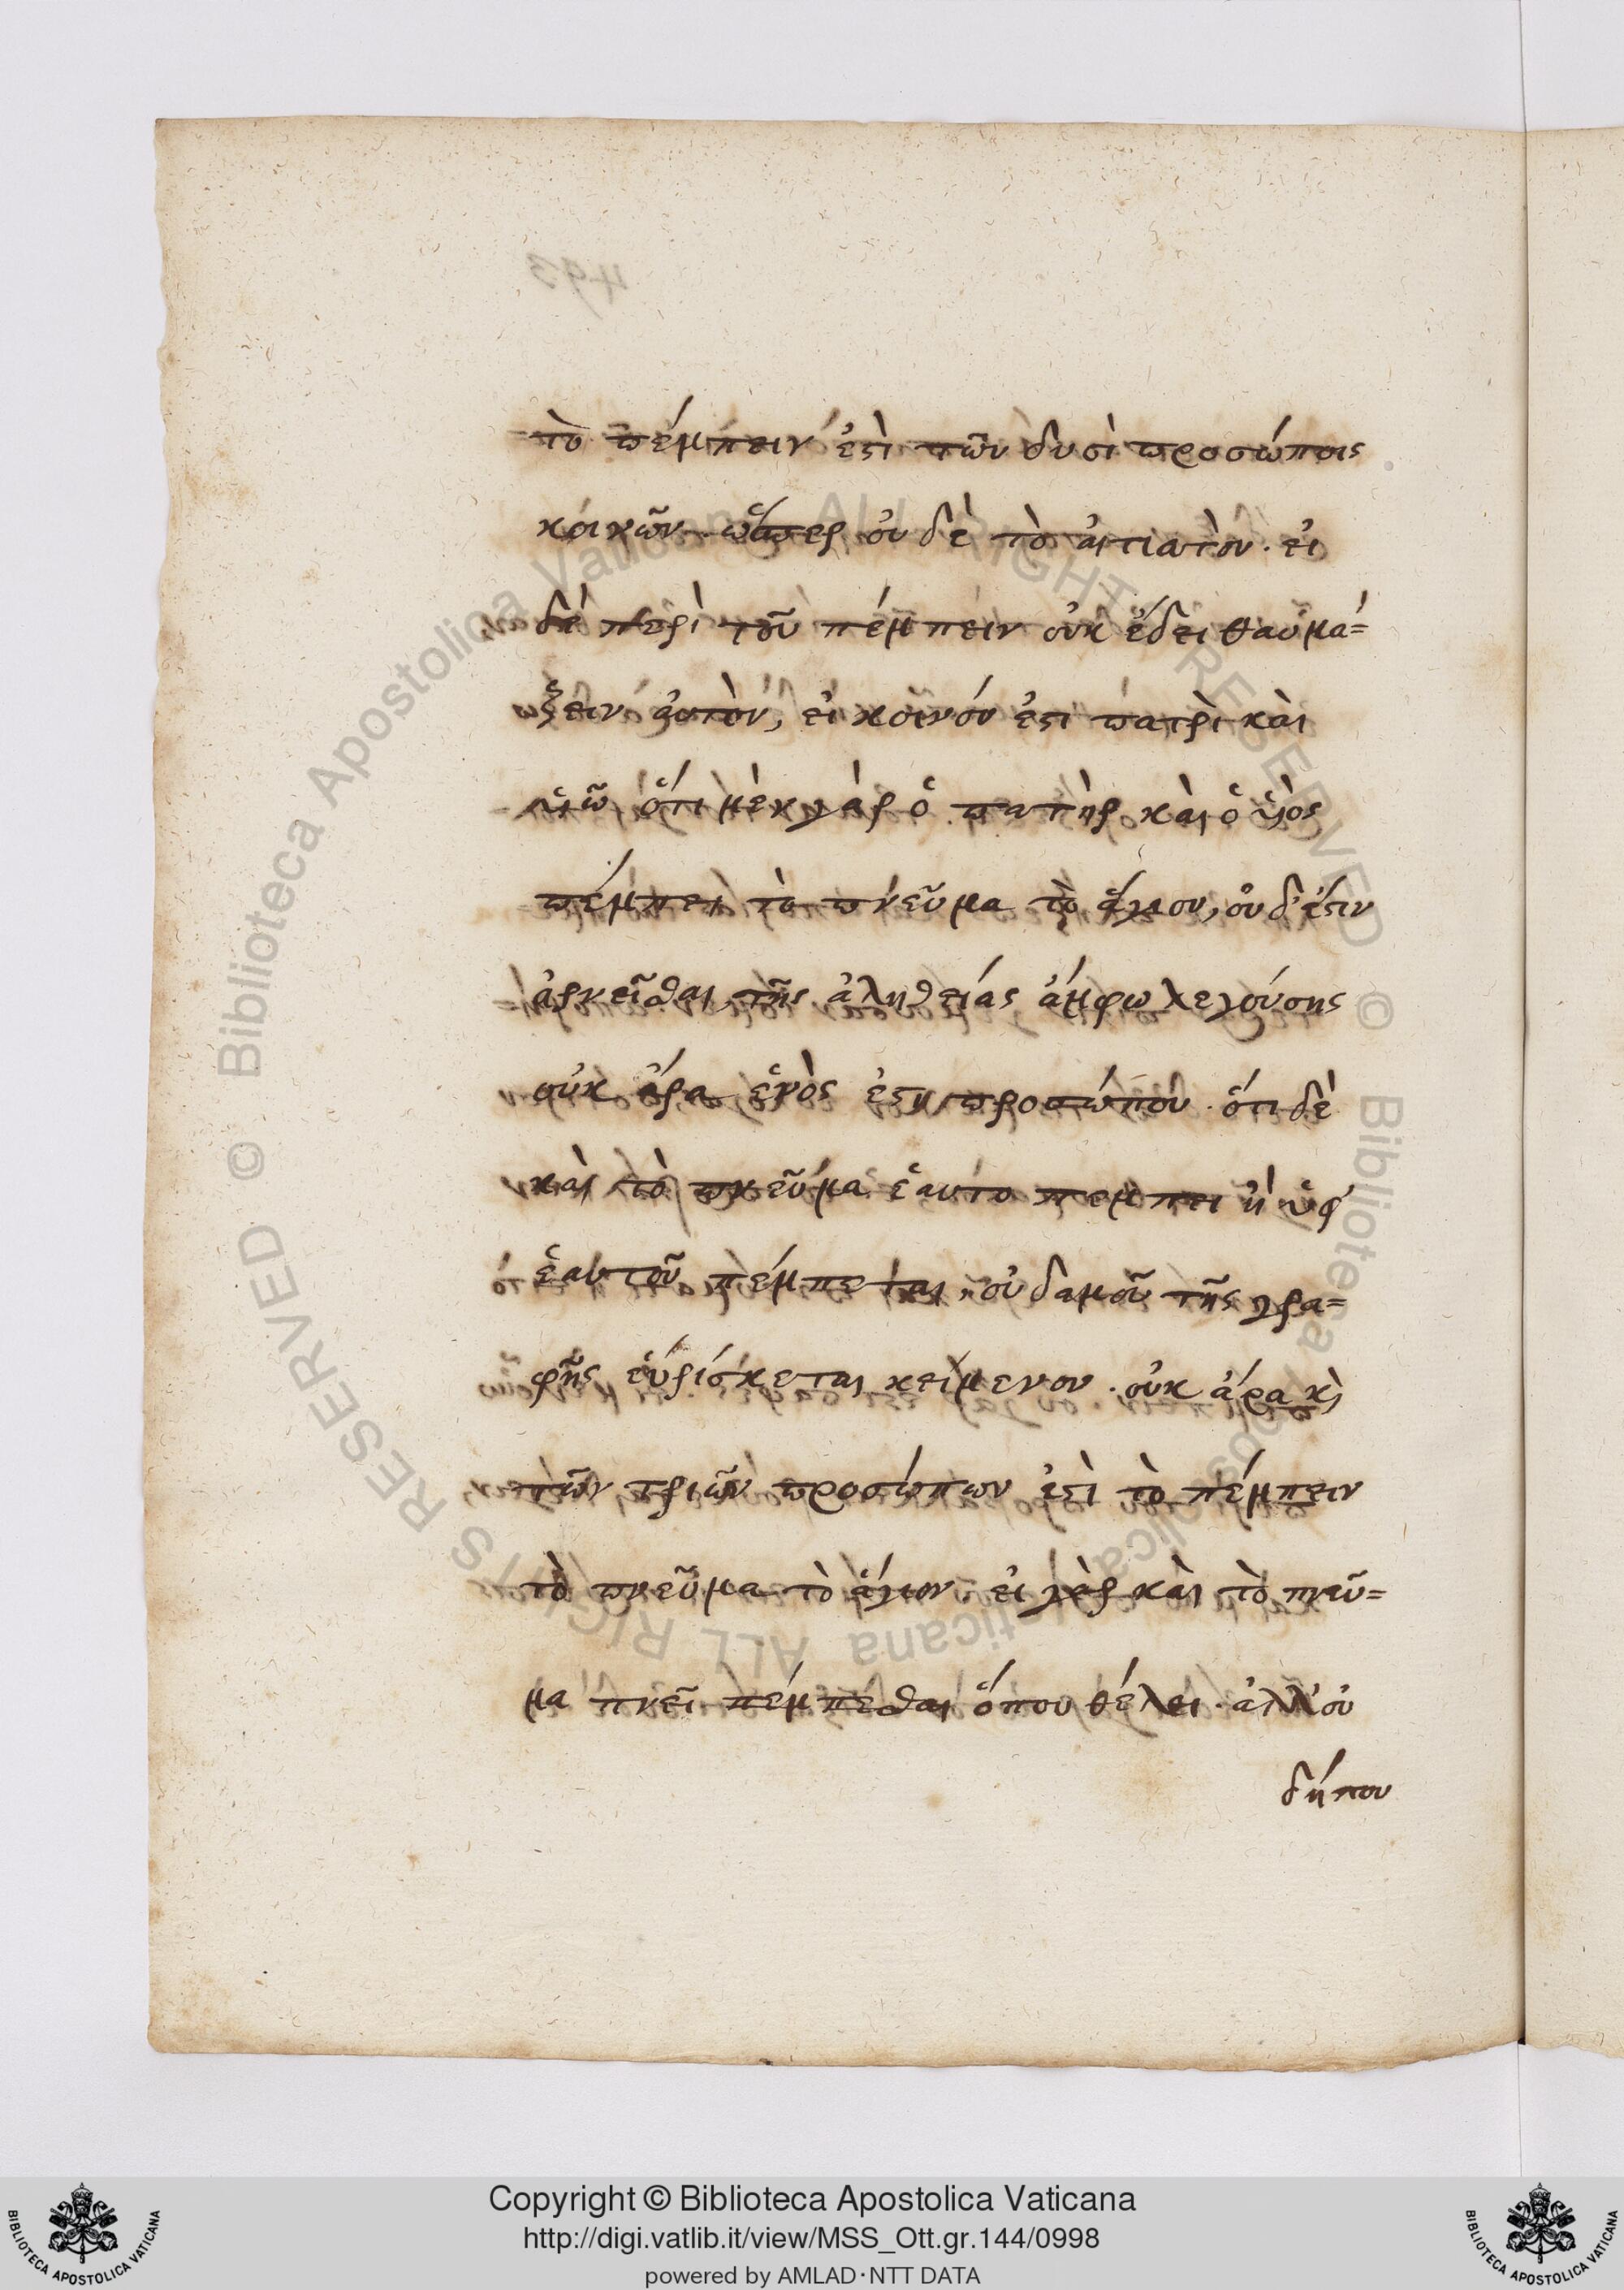 τὸ πέμπειν ἐστὶ τῶν δυσὶ προσώποις
κοινῶν. ὥσπερ οὐδὲ τὸ αἰτιατὸν. εἰ
δὲ περὶ τοῦ πέμπειν οὐκ ἔδει θαυμά=
ξειν αὐτὸν, εἰ κοινόν ἐστι πατρὶ καὶ
ὑιῶ ὅτι μὲν γὰρ ὁ πατὴρ καὶ ὁ ὑιὸς
πέμπει τὸ πνεῦμα τὸ ἅγιον, οὐδ' ἔστιν
ἀρνεῖσθαι τῆς ἀληθείας ἄμφω λεγούσης
οὐκ ἄρα ἑνὸς ἐστὶ προσώπου. ὅτι δὲ
καὶ τὸ πνεῦμα ἑαυτο πεμπει ἢ ὑφ'
ἑαυτοῦ πέμπεται, οὐδαμοῦ τῆς γρα=
φῆς εὑρίσκεται κείμενον. οὐκ ἄρα κὶ
τῶν τριῶν προσώπων ἐστὶ τὸ πέμπειν
τὸ πνεῦμα τὸ ἅγιον εἰ γὰρ καὶ τὸ πνεῦ=
μα πνεῖ πέμπεσθαι ὅπου θέλει. ἀλλ' οὐ
δήπου
Copyright © Biblioteca Apostolica Vaticana
http://digi.vatlib.it/view/MSS_Ott.gr.144/0998
powered by AMLAD·NTT DATA
BIBLIOTECA APOSTOLICA VATICANA
BIBLIOTECA APOSTOLICA VATICANA
© Biblioteca Apostolica Vaticana ALL RIGHTS RESERVED
© Biblioteca Apostolica Vaticana ALL RIGHTS RESERVED